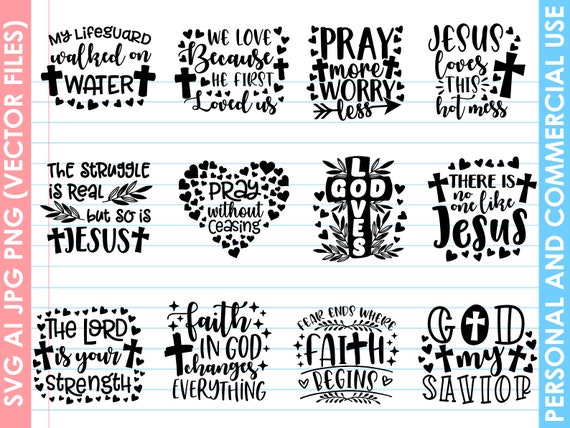 SVG AI JPG PNG (VECTOR FILES)
My Lifeguard
walked on
WATER
WE LOVE
Because
HE FIRST
Loved us
PRAY
more
WORRY
less
JESUS
loves
THIS
hot mess
THE STRUGGLE
is REAL
but so is
JESUS
PRAY
without
CEASING
GOD
LOVES
THERE IS
no
one like
Jesus
THE LORD
is your
STRENGTH
faith
IN GOD
changes
EVERYTHING
FEAR ENDS WHERE
FAITH
BEGINS
GOD
my
SAVIOR
PERSONAL AND COMMERCIAL USE